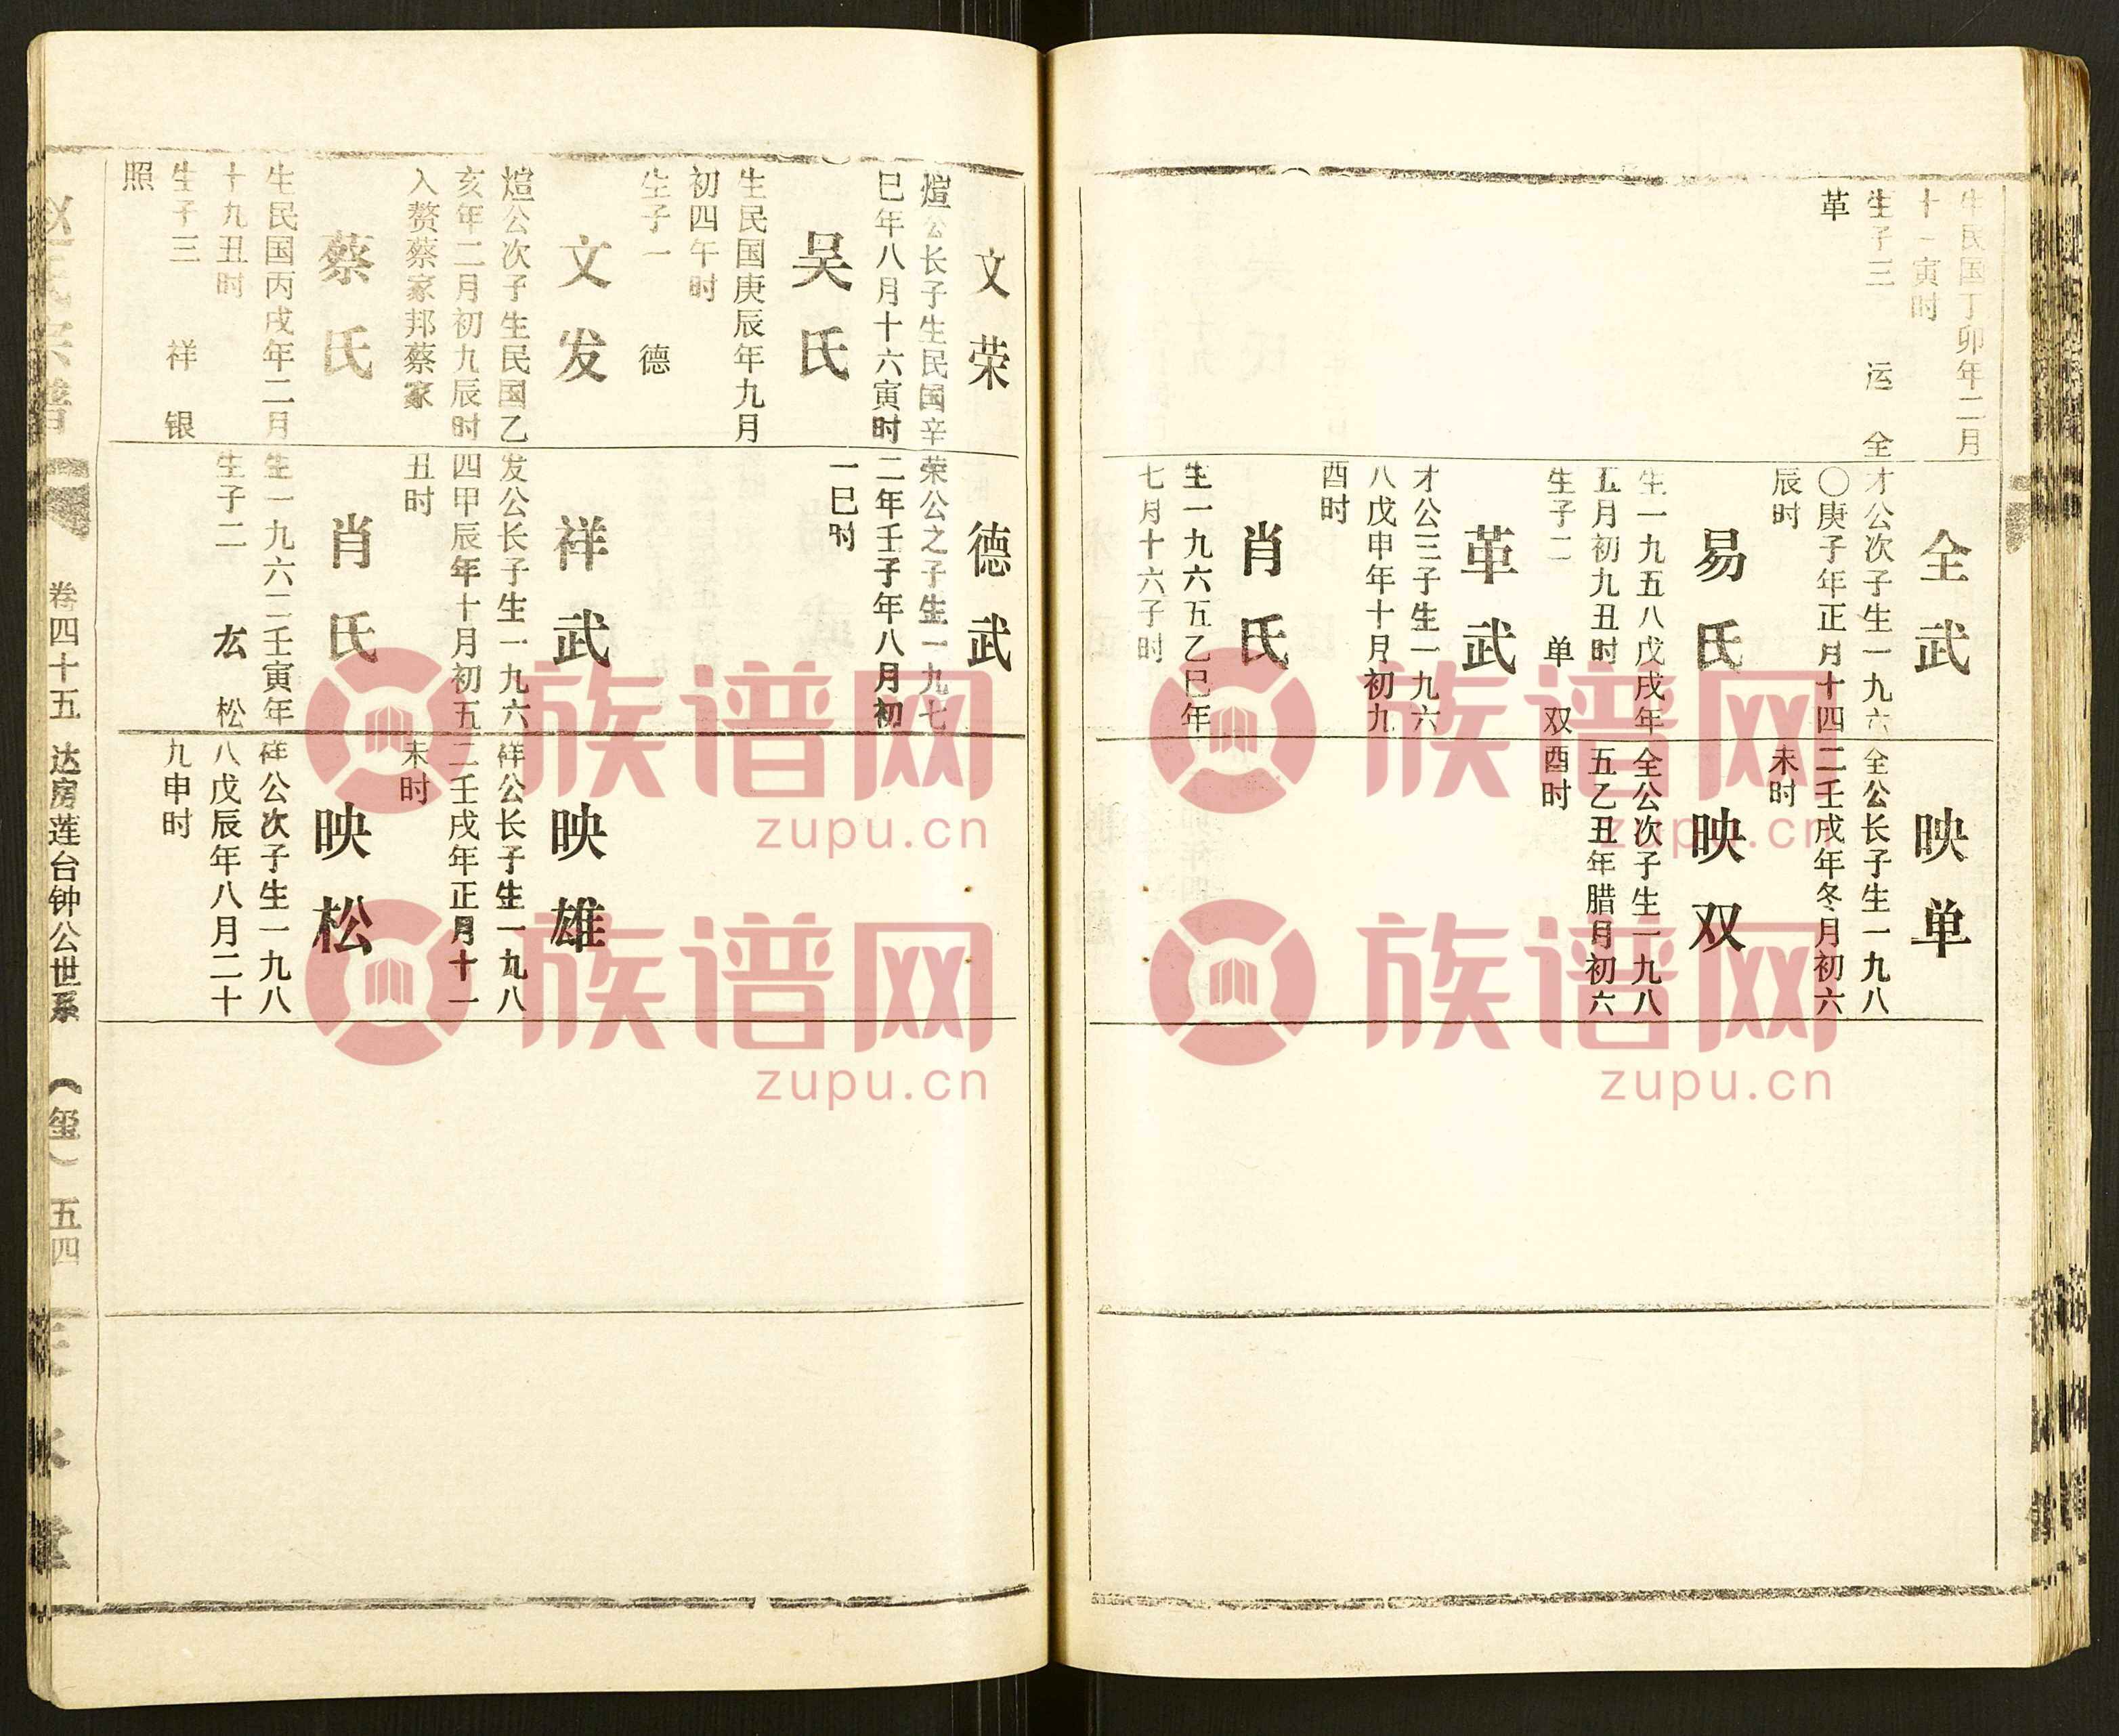 生民国丁卯年二月
十一寅时
生子三 运 全
革
全武
才公次子生一九六
〇庚子年正月十四
辰时
易氏
生一九五八戊戌年
五月初九丑时
生子二 单 双
革武
才公三子生一九六
八戊申年十月初九
酉时
肖氏
生一九六五乙巳年
七月十六子时
映单
全公长子生一九八
二壬戌年冬月初六
未时
映双
全公次子生一九八
五乙丑年腊月初六
酉时
文荣
煊公长子生民国辛
巳年八月十六寅时
吴氏
生民国庚辰年九月
初四午时
生子一 德
文发
煊公次子生民国乙
亥年二月初九辰时
入赘蔡家邦蔡家
蔡氏
生民国丙戌年二月
十九丑时
生子三 祥 银
照
德武
荣公之子生一九七
二年壬子年八月初
一巳时
祥武
发公长子生一九六
四甲辰年十月初五
丑时
肖氏
生一九六二壬寅年
生子二 厷 松
映雄
祥公长子生一九八
二壬戌年正月十一
未时
映松
祥公次子生一九八
八戊辰年八月二十
九申时
卷四十五 达房莲台钟公世系 (玺) 五四
族谱网
zupu.cn
族谱网
zupu.cn
族谱网
zupu.cn
族谱网
zupu.cn